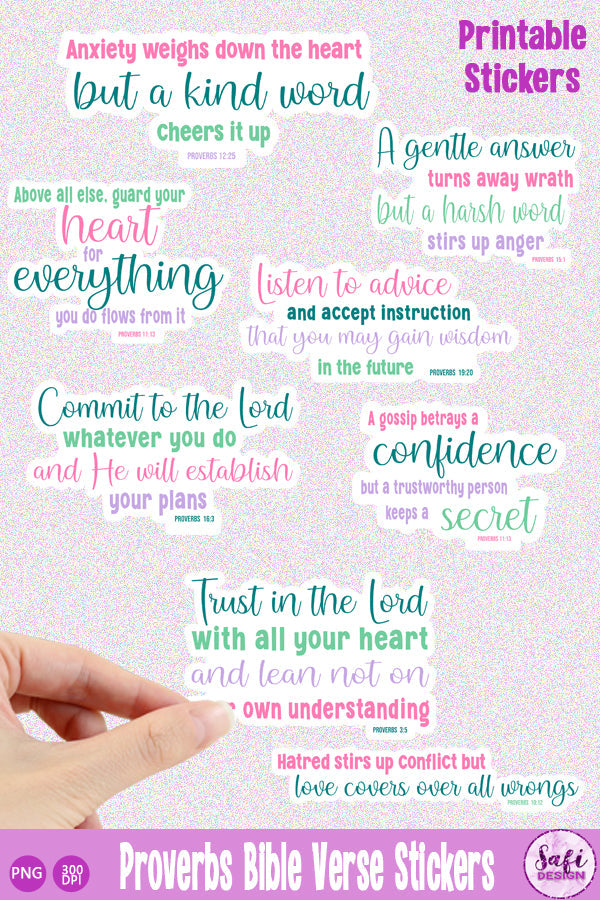 Printable
Stickers
Anxiety weighs down the heart
but a kind word
cheers it up
PROVERBS 12:25
A gentle answer
turns away wrath
but a harsh word
stirs up anger
PROVERBS 15:1
Above all else, guard your
heart
for
everything
you do flows from it
PROVERBS 11:13
Listen to advice
and accept instruction
that you may gain wisdom
in the future
PROVERBS 19:20
Commit to the Lord
whatever you do
and He will establish
your plans
PROVERBS 16:3
A gossip betrays a
confidence
but a trustworthy person
keeps a
secret
PROVERBS 11:13
Trust in the Lord
with all your heart
and lean not on
own understanding
PROVERBS 3:5
Hatred stirs up conflict but
love covers over all wrongs
PROVERBS 10:12
PNG
300
DPI
Proverbs Bible Verse Stickers
Safi
DESIGN